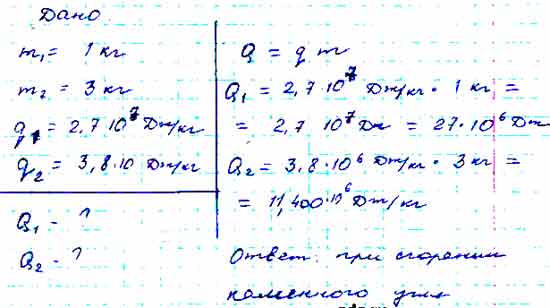 Дано
m₁ = 1 кг
m₂ = 3 кг
q₁ = 2,7 10⁷ Дж/кг
q₂ = 3,8·10 Дж/кг
Q₁ - ?
Q₂ - ?
Q = q m
Q₁ = 2,7·10⁷ Дж/кг · 1 кг =
= 2,7 10⁷ Дж = 27·10⁶ Дж
Q₂ = 3,8·10⁶ Дж/кг · 3 кг =
= 11,400·10⁶ Дж/кг
Ответ: при сгорании
каменного угля